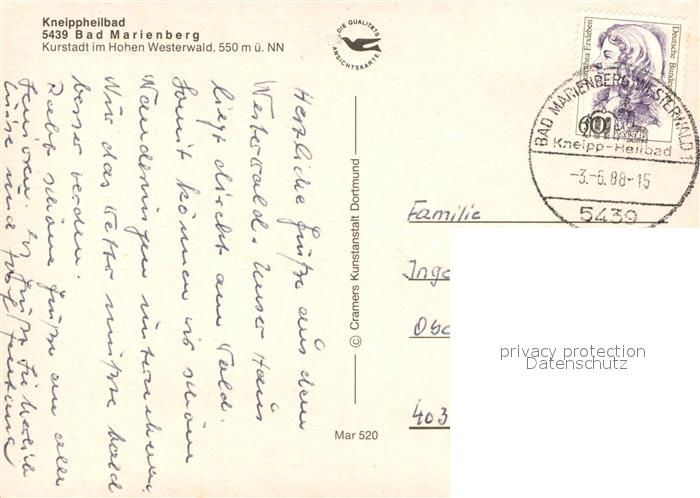 Kneippheilbad
5439 Bad Marienberg
Kurstadt im Hohen Westerwald, 550 m ü. NN
DIE QUALITÄTS
ANSICHTSKARTE
Herzliche Grüße aus dem
Westerwald. Unser Haus
liegt direkt am Wald.
Somit können wir schöne
Wanderungen unternehmen.
Nur das Wetter müßte bald
besser werden.
Recht schöne Grüße an alle
Senioren.
© Cramers Kunstanstalt Dortmund
Mar 520
Dorothea Erxleben
Deutsche Bundespost
60
BAD MARIENBERG, WESTERWALD 1
Kneipp-Heilbad
-3.-6.88-15
5439
Familie
Inge
Obe
403
privacy protection
Datenschutz